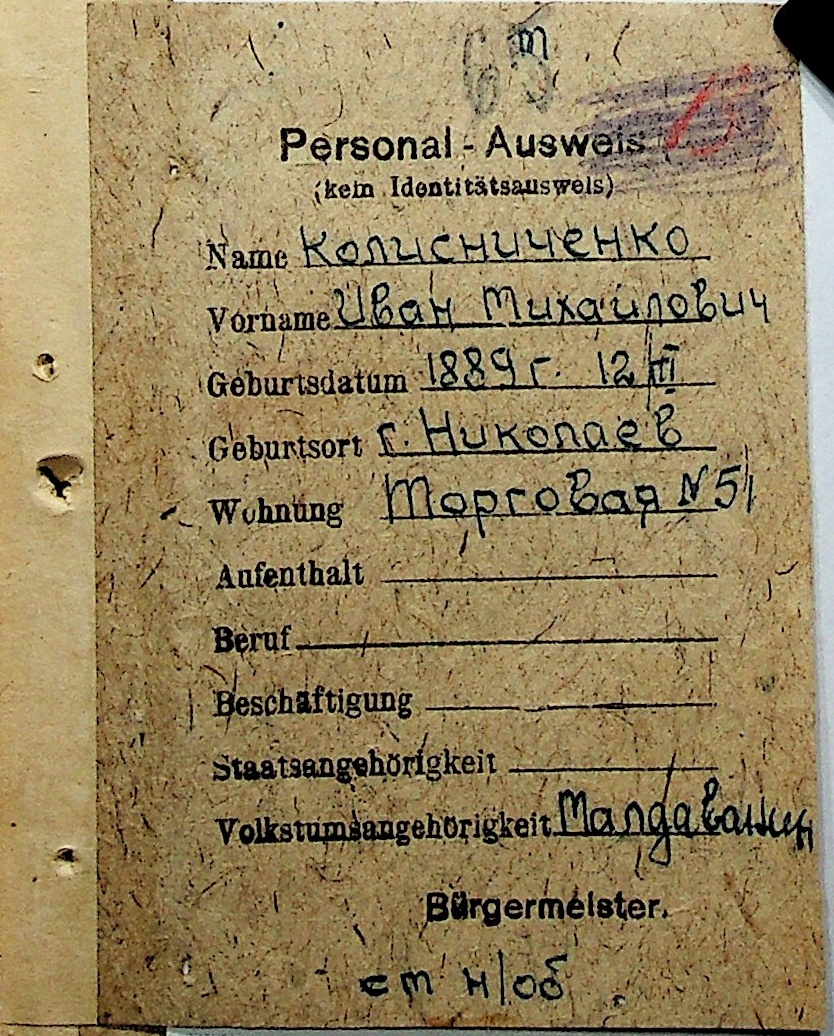 65 т
Personal - Ausweis
(kein Identitätsausweis)
Name Колисниченко
Vorname Иван Михайлович
Geburtsdatum 1889 г. 12/III
Geburtsort г. Николаев
Wohnung Торговая N 51
Aufenthalt
Beruf
Beschäftigung
Staatsangehörigkeit
Volkstumsangehörigkeit Малдаванин
Bürgermeister.
ст н/об